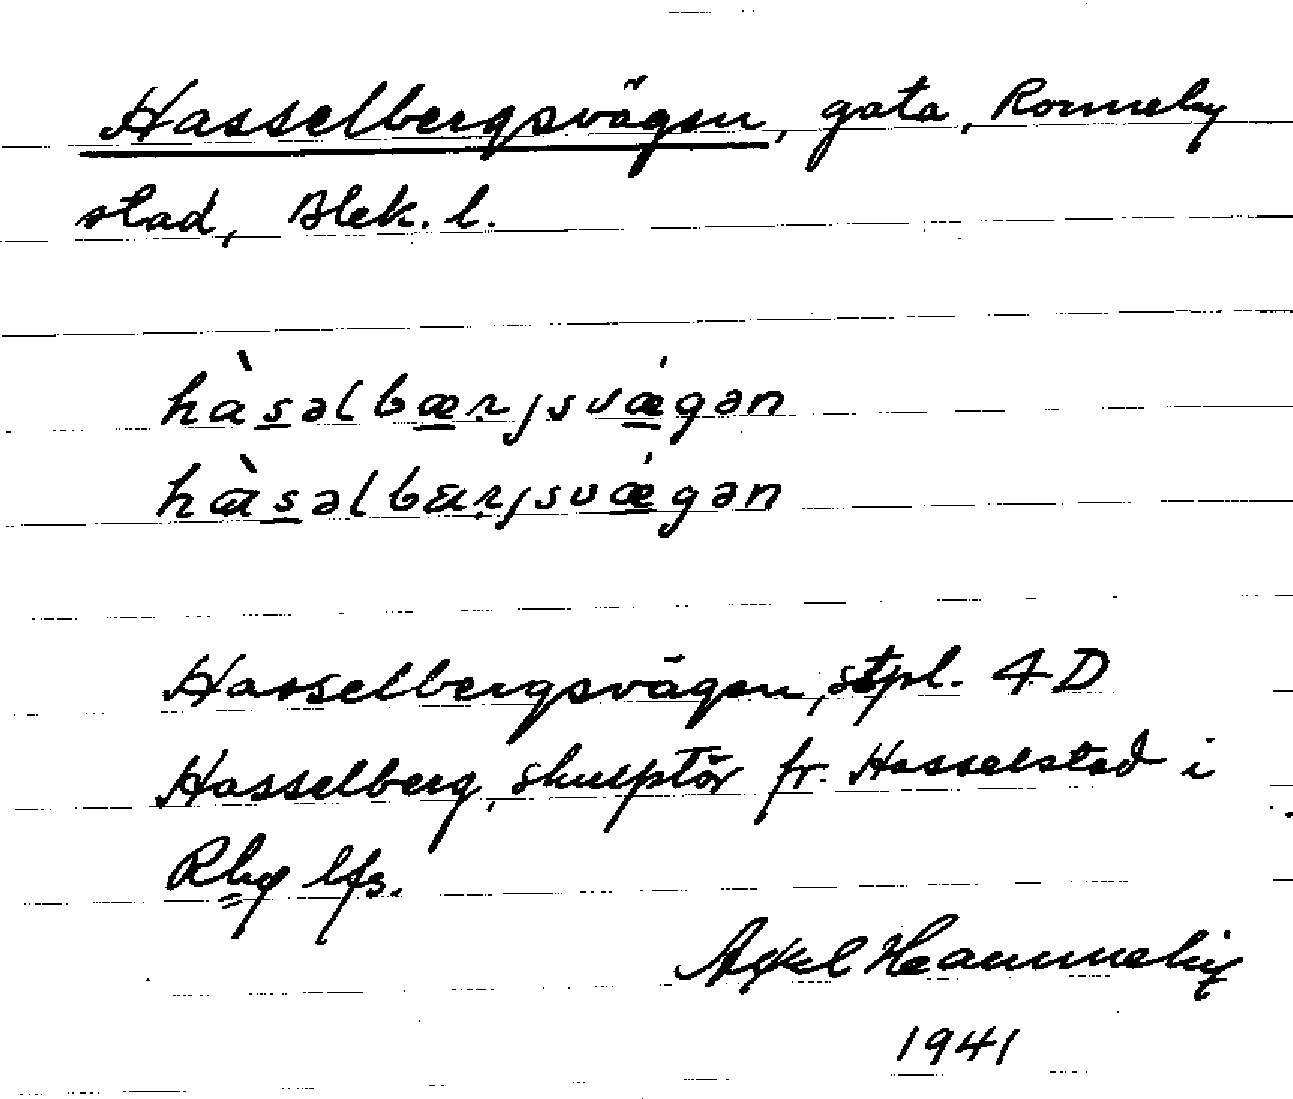 Hasselbergsvägen, gata, Ronneby
stad, Blek. l.
hàsəlbærjsvǽgən
hàsəlbarjsvǽgən
Hasselbergsvägen, stpl. 4 D
Hasselberg, skulptör fr. Hasselstad i
Rby lfs.
Axel Hammeby
1941